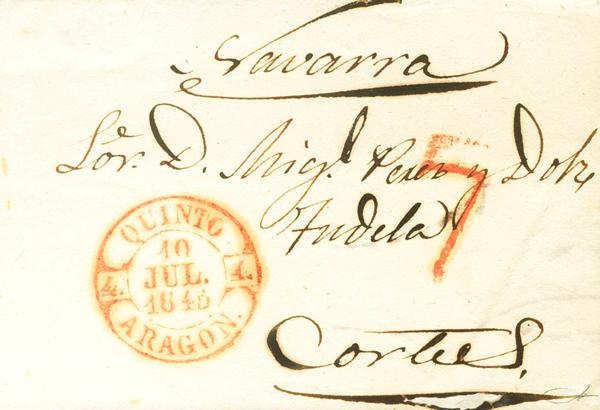 Navarra
Sor. D. Migl. Perez y Dolz
Tudela
7
QUINTO
10
JUL.
1845
4. 1.
ARAGON.
Cortes.